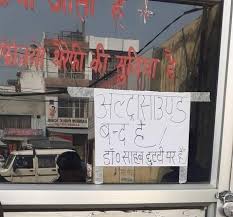 जाता है
की सुविधा है
अल्ट्रासाउण्ड
बन्द है
डॉ० साहब छुट्टी पर हैं